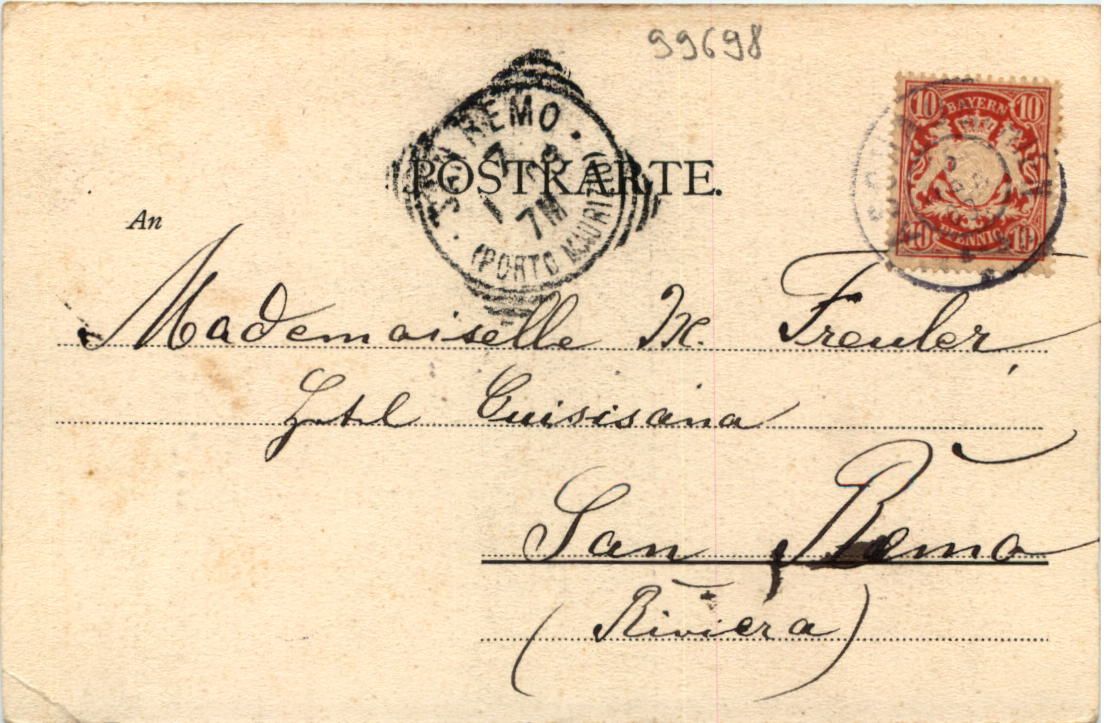 99698
SAN REMO
7M
(PORTO MAURIZIO)
10 BAYERN 10
10 PFENNIG 10
POSTKARTE.
An
Mademoiselle M. Freuler,
Hotel Cuisisana
San Remo
(Riviera)